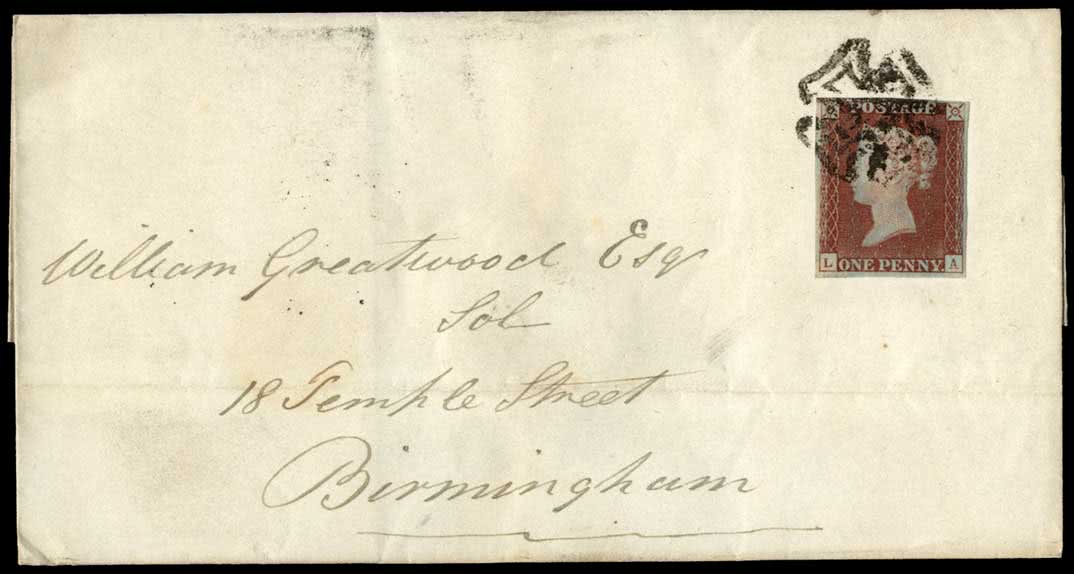 POSTAGE
L ONE PENNY. A
William Greatwood Esqr
Sol
18 Temple Street
Birmingham